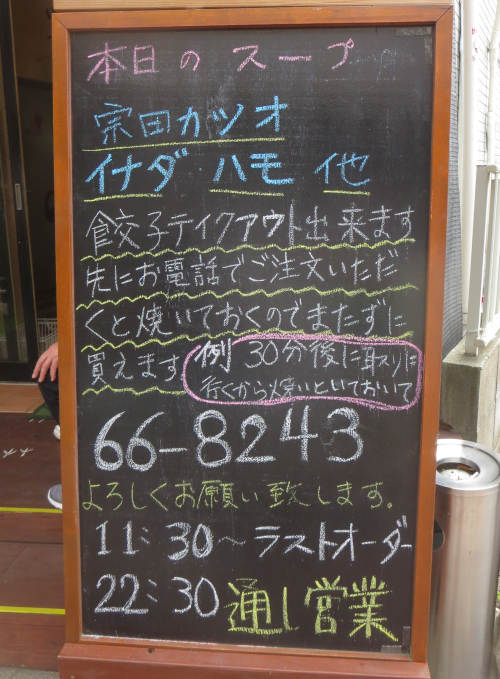 本日のスープ
宗田カツオ
イナダ ハモ 他
餃子テイクアウト出来ます
先にお電話でご注文いただ
くと焼いておくのでまたずに
買えます 例 30分後に取りに
行くから焼いといておいて
66-8243
よろしくお願い致します。
11:30～ラストオーダー
22:30 通し営業